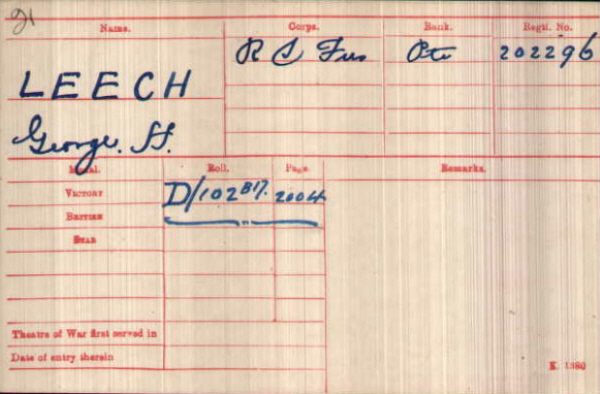 21
Name. Corps. Rank. Regtl. No.
R S Fus Pte 202296
LEECH
George. H.
Medal. Roll. Page. Remarks.
Victory D/102 B17. 2004
British — „ —
Star
Theatre of War first served in
Date of entry therein
K. 1380